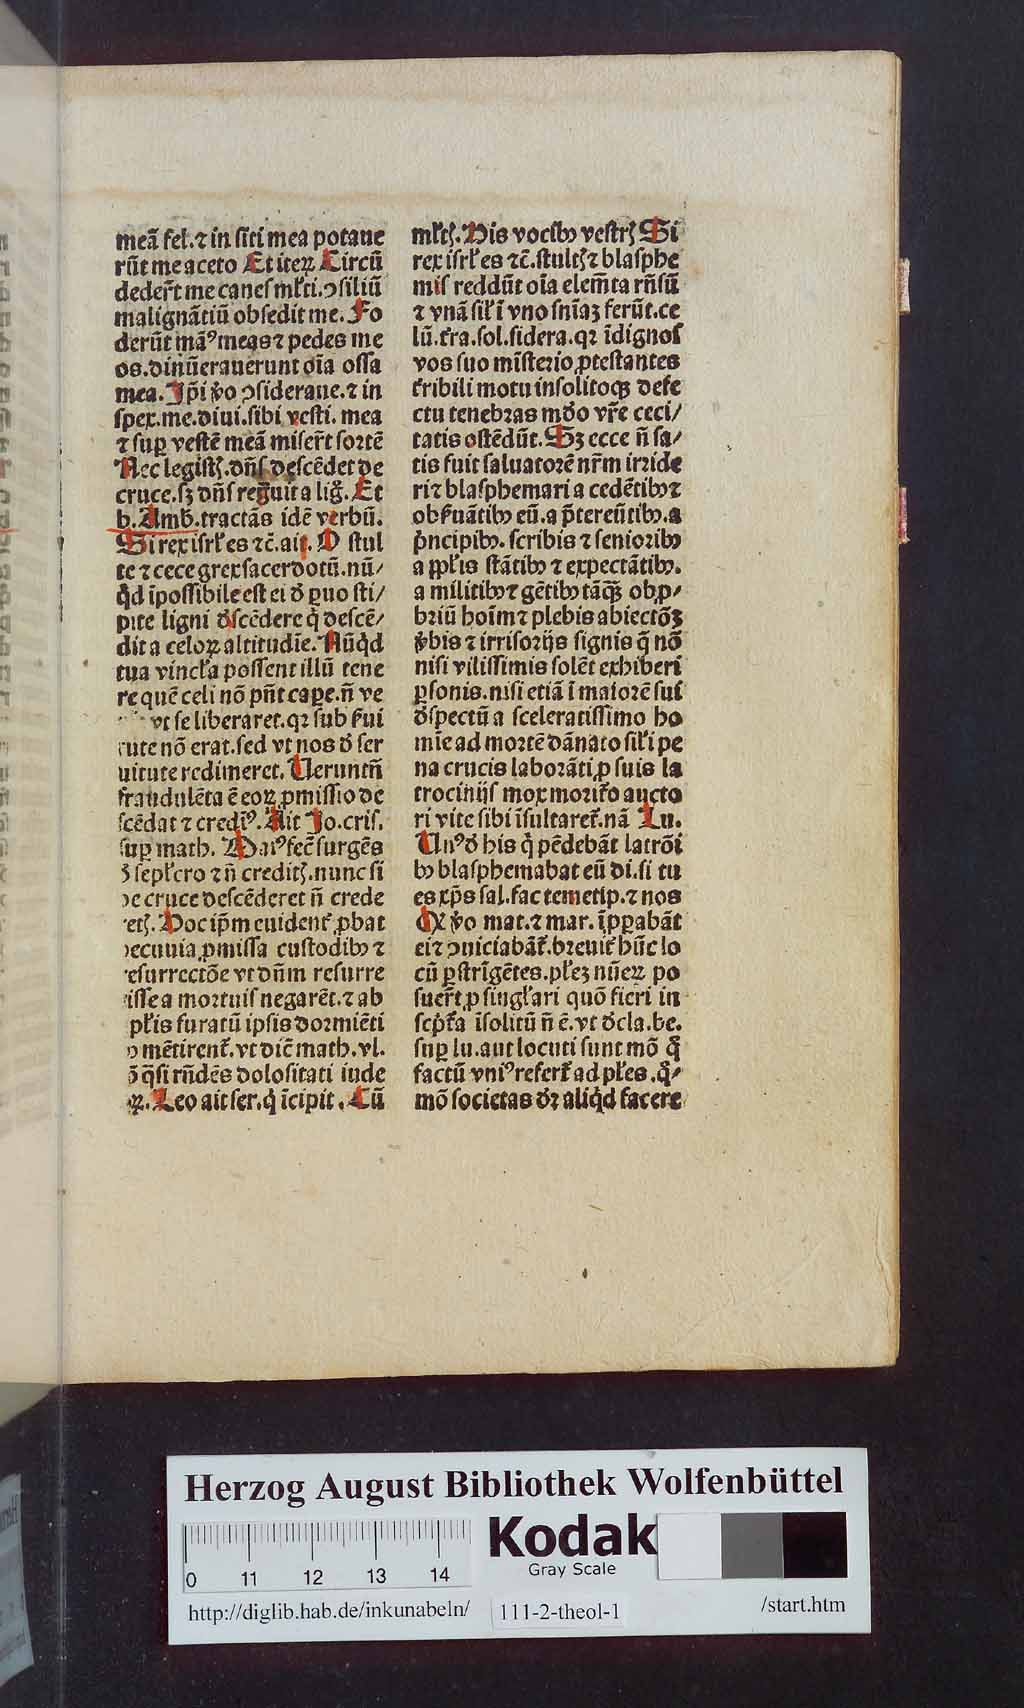 meã fel. ⁊ in ſiti mea potaue
rũt me aceto Et iteꝝ Circũ
dedert̃ me caneſ ml̃ti. ↄſiliũ
malignãtiũ obſedit me. Fo
derũt mãꝰ meas ⁊ pedes me
os. dinũerauerunt oĩa oſſa
mea. Ip̃i ṽo ↄſideraue. ⁊ in
ſpex. me. diui. ſibi veſti. mea
⁊ suꝑ veſtẽ meã miſert̃ ſortẽ
Nec legiſtꝭ. dñſ deſcẽdet de
cruce. ſꝫ dñſ regͣuit a lig̃. Et
b. Amb̃. tractãs idẽ verbũ.
Si rex iſrl̃ es ⁊c̃. ait. O ſtul
te ⁊ cece grex ſacerdotũ. nũ/
q̇d ĩpoſſibile eſt ei đ ꝑuo ſti/
pite ligni đſcẽdere q̇ deſcẽ/
dit a celoꝝ altitudĩe. Nũq̇d
tua vincl̃a poſſent illũ tene
re quẽ celi nõ pñt caꝑe. ñ ve
vt ſe liberaret. qꝛ ſub ẜui
tute nõ erat. ſed vt nos đ ſer
uitute redimeret. Veruntñ
fraudulẽta ẽ eoꝝ ꝓmiſſio de
ſcẽdat ⁊ credĩꝰ. Ait Jo. criſ.
ſuꝑ math. Maiꝰ fec̃ ſurgẽs
đ ſepl̃cro ⁊ ñ creditꝭ. nunc ſi
de cruce deſcẽderet ñ crede
retꝭ. Hoc ip̃m euident̃ ꝓbat
pecunia ꝓmiſſa cuſtodibꝰ ⁊
reſurrectõe vt dñm reſurre
xiſſe a mortuiſ negarẽt. ⁊ ab
pl̃is furatũ ipſis dormiẽti
mẽtirent̃. vt dic̃ math. vl.
q̃ſi rñdẽs doloſitati iude
oꝝ. Leo ait ſer. q̇ ĩcipit. Cũ
ml̃tꝭ. His vocibꝰ veſtrꝭ Si
rex iſrl̃ es ⁊c̃. ſtultꝭ ⁊ blaſphe
miſ reddũt oĩa elem̃ta rñſũ
⁊ vnã ſil̃ ĩ vno ſnĩaꝫ ferũt. ce
lũ. t̃ra. ſol. ſidera. qꝛ ĩdignoſ
vos ſuo mĩſterio ꝓteſtantes
t̃ribili motu inſolitoqꝫ defe
ctu tenebras mđo vr̃e ceci/
tatis oſtẽdũt. Sꝫ ecce ñ ſa/
tis fuit ſaluatorẽ nr̃m irride
ri ⁊ blaſphemari a cedẽtibꝰ ⁊
obẜuãtibꝰ eũ. a p̃tereũtibꝰ. a
pͥncipibꝰ. ſcribis ⁊ ſenioribꝰ
a ppl̃is ſtãtibꝰ ⁊ expectãtibꝰ.
a militibꝰ ⁊ gẽtibꝰ tãq̃ꝫ obꝓ/
briũ hoĩm ⁊ plebis abiectõꝫ
ṽbis ⁊ irriſorijs ſignis q̃ nõ
niſi viliſſimis ſolẽt exhiberi
ꝑſonis. niſi etiã ĩ maiorẽ ſui
đſpectũ a ſceleratiſſimo ho
mĩe ad mortẽ dãnato ſil̃i pe
na crucis laborãti ꝓ ſuis la
trocinijſ mox morit̃o aucto
ri vite ſibi ĩſultaret̃. nã Lu.
Vnꝰ đ his q̇ pẽdebãt latrõi
bꝰ blaſphemabat eũ di. ſi tu
es xp̃s ſal. fac temetip. ⁊ nos
Qͥ ṽo mat. ⁊ mar. ĩꝓꝑabãt
ei ⁊ ↄuiciabãt̃. breuit̃ hũc lo
cũ ꝑſtrĩgẽtes. pl̃eꝫ nũeꝝ po
ſuert̃ ꝓ ſingl̃ari quõ fieri in
ſcpͥt̃a ĩſolitũ ñ ẽ. vt đcla. be.
ſuꝑ lu. aut locuti ſunt mõ q̃
factũ vniꝰ refert̃ ad pl̃es. q̃/
mõ ſocietas đꝛ aliq̇d facere
Herzog August Bibliothek Wolfenbüttel
Kodak
Gray Scale
0 11 12 13 14
http://diglib.hab.de/inkunabeln/ 111-2-theol-1 /start.htm